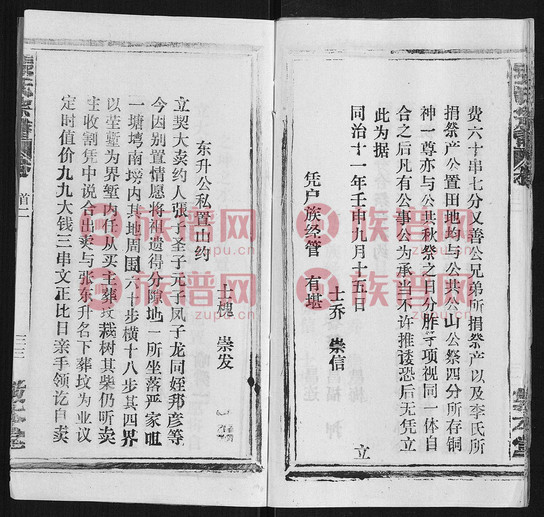 费六十串七分又善公兄弟所捐祭产以及李氏所
捐祭产公置田地均与公共公山公祭四分所存铜
神一尊亦与公共秋祭之日分胙等项视同一体自
合之后凡有公事公为承当不许推诿恐后无凭立
此为据
同治十一年壬申九月十五日 立
士乔 崇信
凭户族经管 有堪
士槐 崇发
东升公私置山约
立契大卖约人张子圣子元子凤子龙同姪邦彦等
今因别置情愿将祖遗得分隙地一所坐落严家咀
一塘塆南塝内其地周围六十步横十八步其四界
以茔堑为界堑内任从买主葬坟栽树其柴仍听卖
主收割凭中说合出卖与张东升名下葬坟为业议
定时值价九九大钱三串文正比日亲手领讫自卖
首二
族谱网
zupu.cn
族谱网
zupu.cn
族谱网
zupu.cn
族谱网
zupu.cn